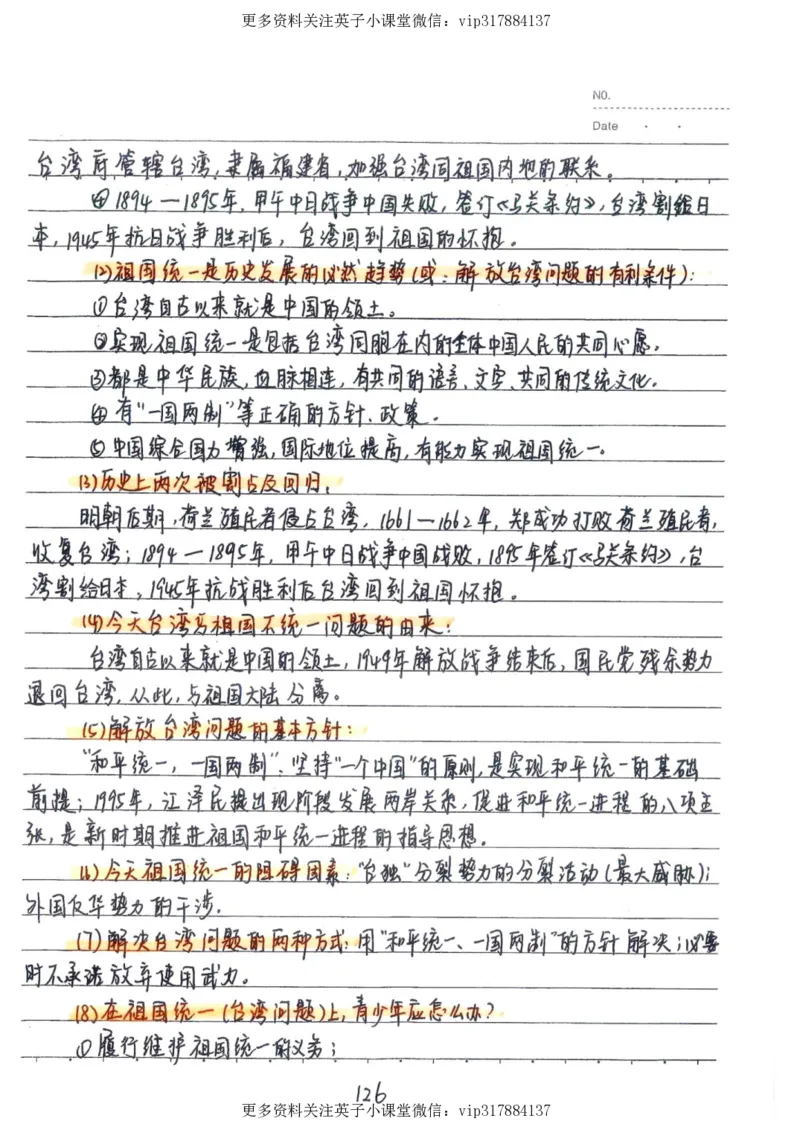 更多资料关注英子小课堂微信：vip317884137
NO.
Date · ·
台湾府管辖台湾,隶属福建省,加强台湾同祖国内地的联系。
④1894—1895年,甲午中日战争中国失败,签订《马关条约》,台湾割给日
本,1945年抗日战争胜利后,台湾回到祖国的怀抱。
(2)祖国统一是历史发展的必然趋势(或:解放台湾问题的有利条件):
①台湾自古以来就是中国的领土。
②实现祖国统一是包括台湾同胞在内的全体中国人民的共同心愿。
③都是中华民族,血脉相连,有共同的语言、文字、共同的传统文化。
④有"一国两制"等正确的方针、政策。
⑤中国综合国力增强,国际地位提高,有能力实现祖国统一。
(3)历史上两次被割占及回归:
明朝后期,荷兰殖民者侵占台湾,1661—1662年,郑成功打败荷兰殖民者,
收复台湾;1894—1895年,甲午中日战争中国战败,1895年签订《马关条约》,台
湾割给日本,1945年抗战胜利后台湾回到祖国怀抱。
(4)今天台湾与祖国不统一问题的由来:
台湾自古以来就是中国的领土,1949年解放战争结束后,国民党残余势力
退回台湾,从此,与祖国大陆分离。
(5)解放台湾问题的基本方针:
"和平统一,一国两制";坚持"一个中国"的原则,是实现和平统一的基础
前提;1995年,江泽民提出现阶段发展两岸关系,促进和平统一进程的八项主
张,是新时期推进祖国和平统一进程的指导思想。
(6)今天祖国统一的阻碍因素:"台独"分裂势力的分裂活动(最大威胁);
外国反华势力的干涉.
(7)解决台湾问题的两种方式:用"和平统一、一国两制"的方针解决;必要
时不承诺放弃使用武力。
(8)在祖国统一(台湾问题)上,青少年应怎么办?
①履行维护祖国统一的义务;
126
更多资料关注英子小课堂微信：vip317884137